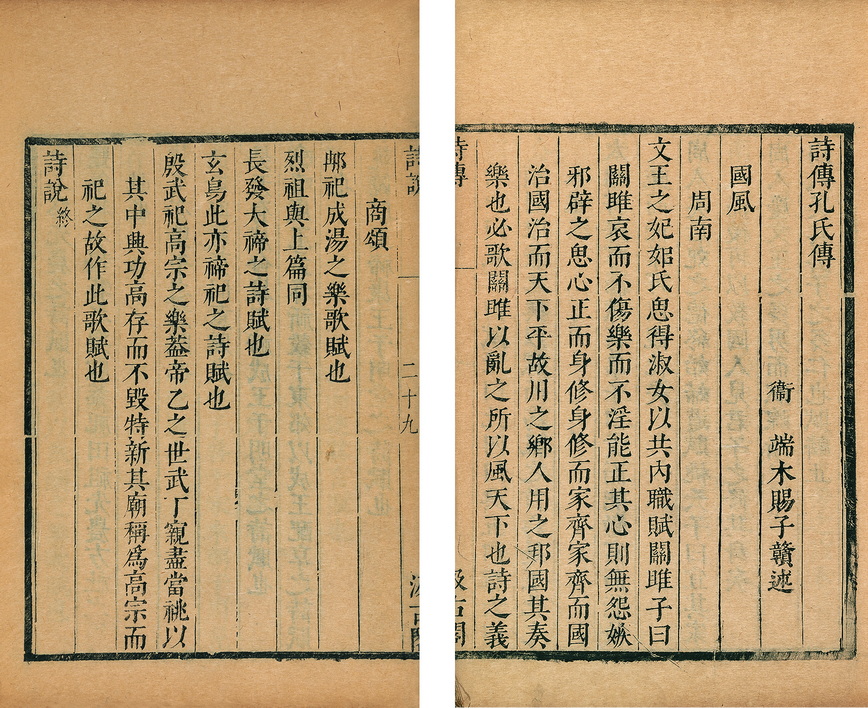 詩傳孔氏傳
衞 端木賜子贛述
國風
周南
文王之妃姒氏思得淑女以共內職賦關雎子曰
關雎哀而不傷樂而不淫能正其心則無怨嫉
邪辟之思心正而身修身修而家齊家齊而國
治國治而天下平故用之鄉人用之邦國其奏
樂也必歌關雎以亂之所以風天下也詩之義
詩傳
一
汲古閣
詩說
二十九
汲古閣
商頌
那祀成湯之樂歌賦也
烈祖與上篇同
長發大禘之詩賦也
玄鳥此亦禘祀之詩賦也
殷武祀高宗之樂葢帝乙之世武丁寴盡當祧以
其中興功高存而不毀特新其廟稱爲高宗而
祀之故作此歌賦也
詩說終